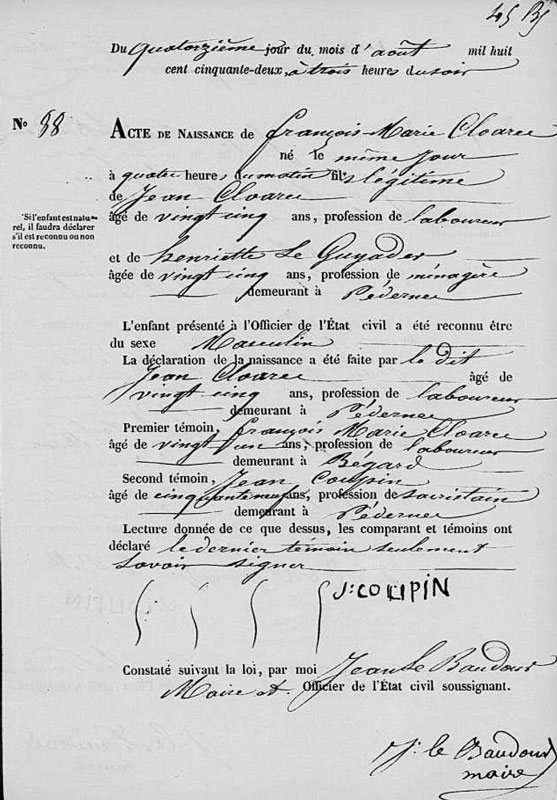 45 Bis
Du Quatorzième jour du mois d'août mil huit
cent cinquante-deux, à trois heures du soir
N° 88
ACTE DE NAISSANCE de françois-Marie Cloarec
né le même jour
à quatre heures du matin fils légitime
de Jean Cloarec
âgé de vingt cinq ans, profession de laboureur
Si l'enfant est natu-
rel, il faudra déclarer
s'il est reconnu ou non
reconnu.
et de henriette Le Guyader
âgée de vingt cinq ans, profession de ménagère
demeurant à Pédernec
L'enfant présenté à l'Officier de l'État civil a été reconnu être
du sexe Masculin
La déclaration de la naissance a été faite par le dit
Jean Cloarec âgé de
vingt cinq ans, profession de laboureur
demeurant à Pédernec
Premier témoin, françois Marie Cloarec
âgé de vingt un ans, profession de laboureur
demeurant à Bégard
Second témoin, Jean Coupin
âgé de cinquante neuf ans, profession de sacristain
demeurant à Pédernec
Lecture donnée de ce que dessus, les comparant et témoins ont
déclaré le dernier témoin seulement
savoir signer
J: COUPIN
Constaté suivant la loi, par moi Jean Le Baudour
Maire et Officier de l'État civil soussigné.
J. le Baudour
maire